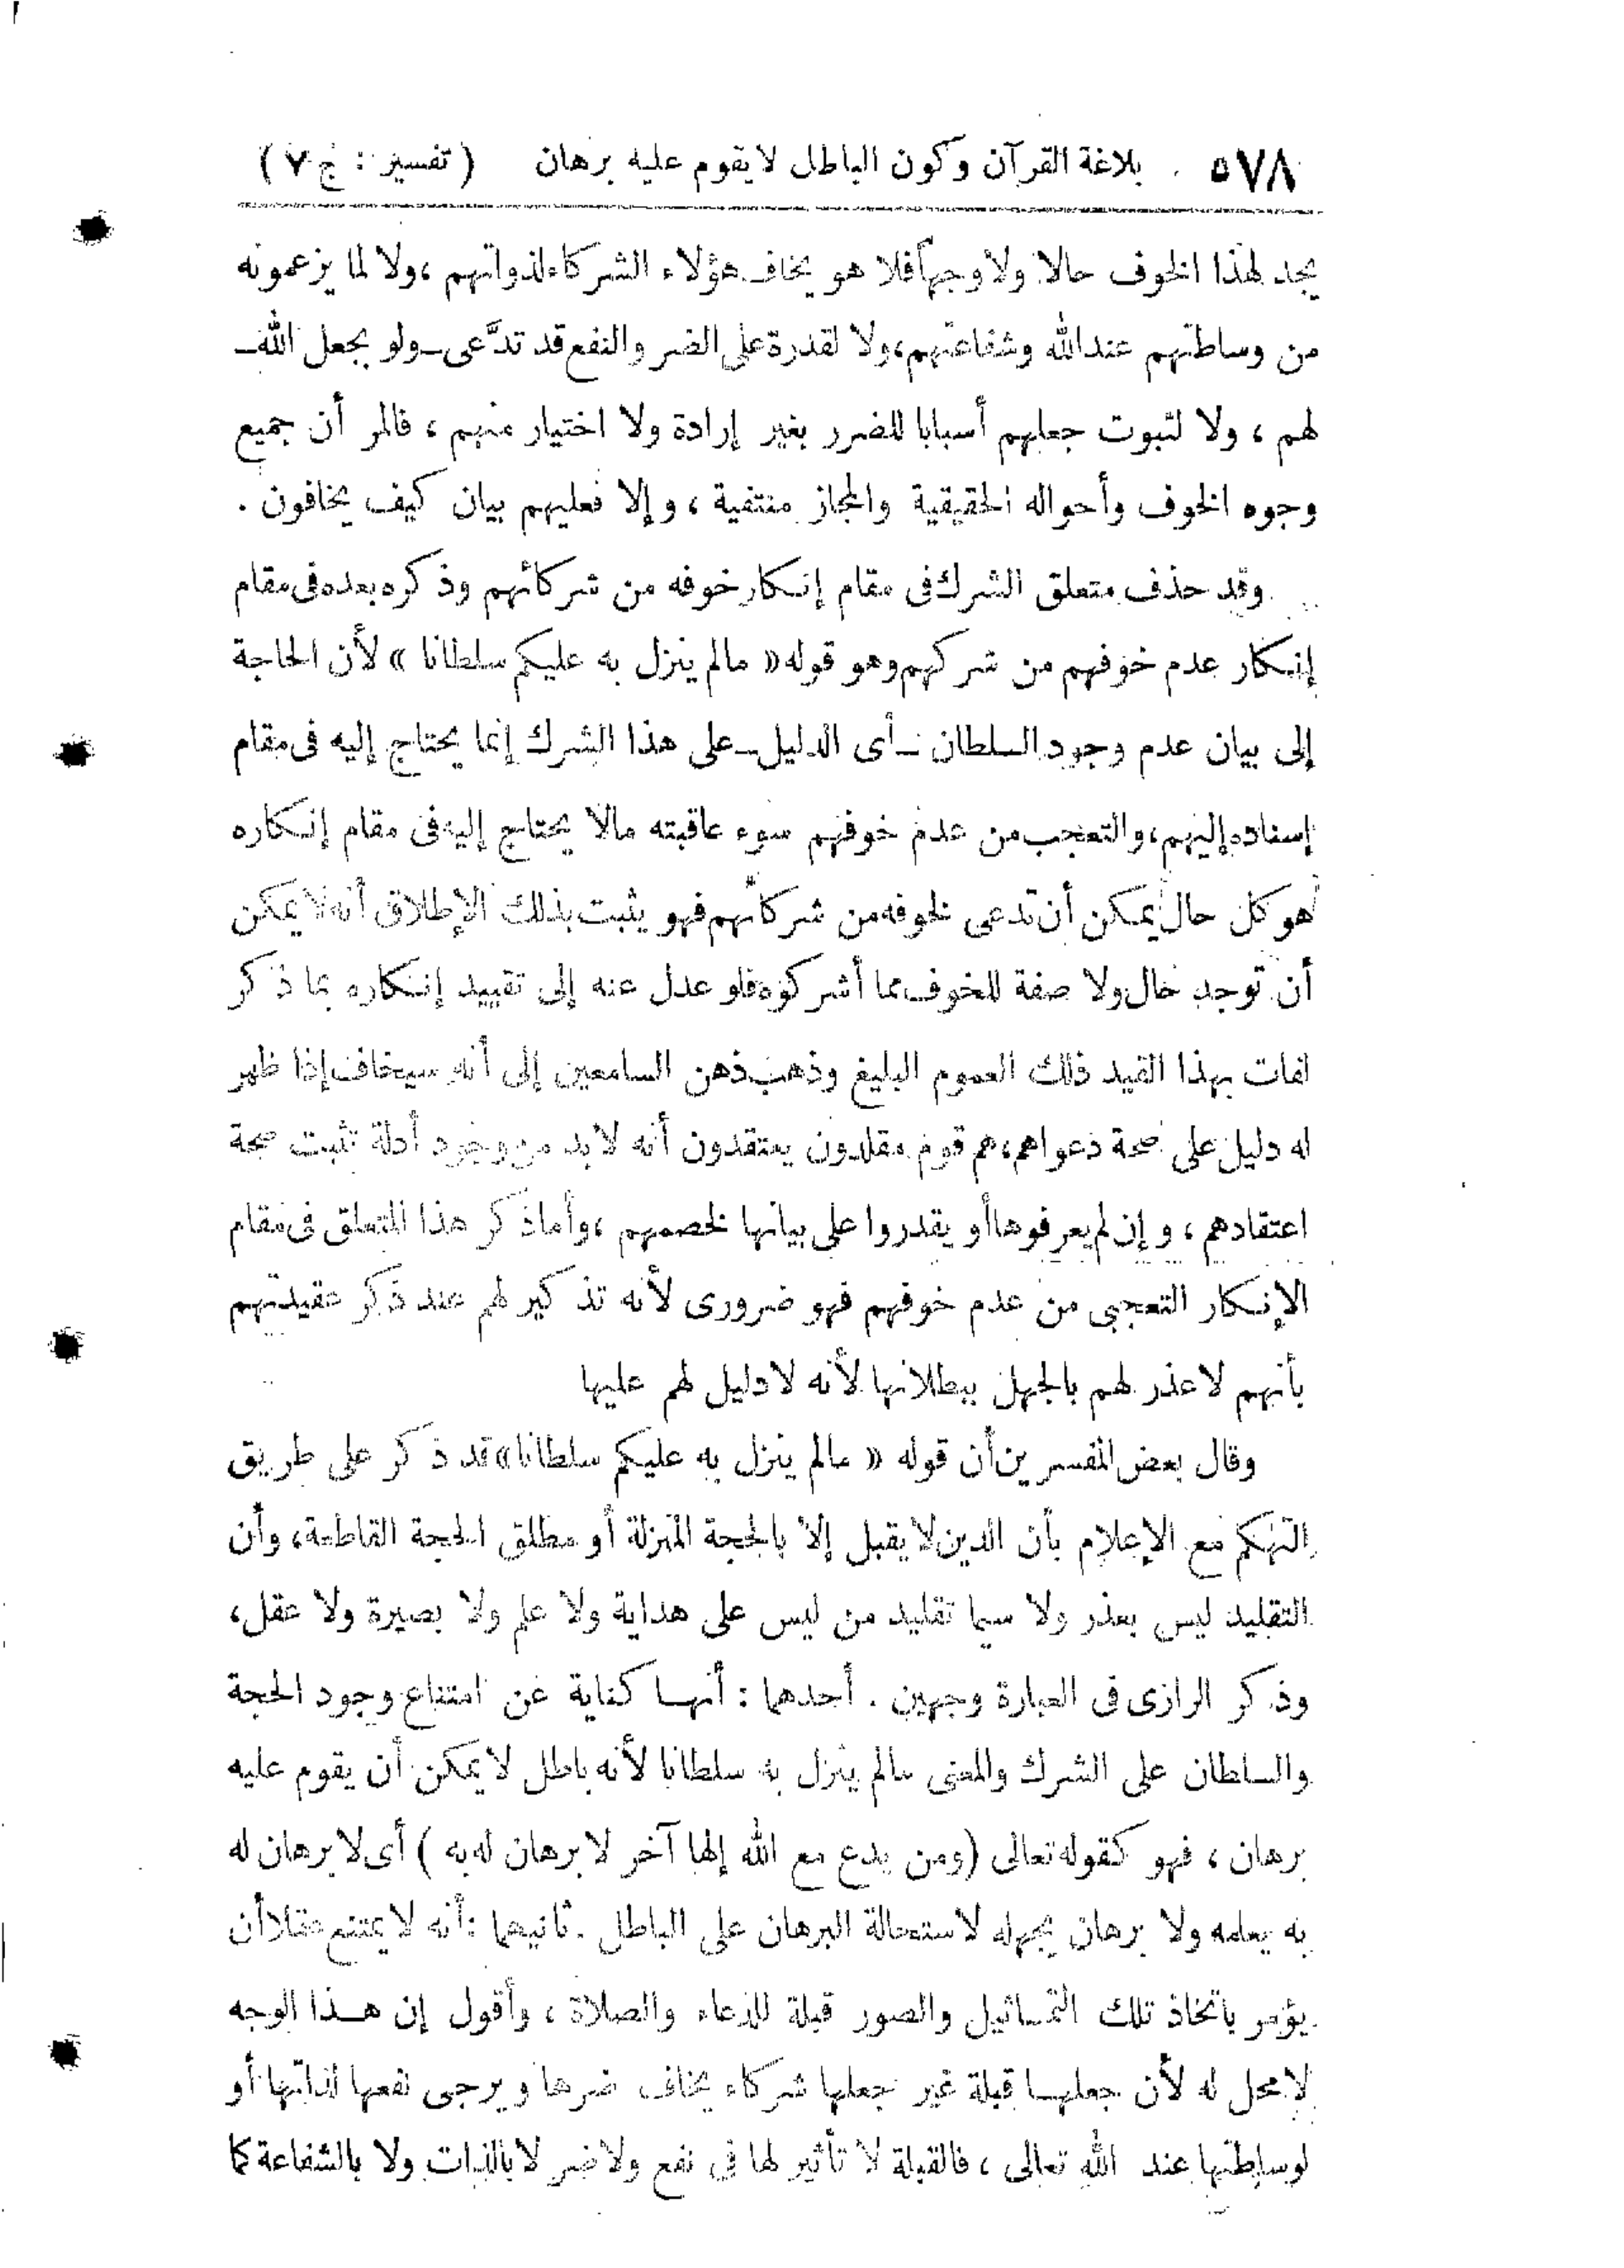 ٥٧٨ بلاغة القرآن وكون الباطل لا يقوم عليه برهان ( تفسير : ج ٧ )
يجد لهذا الخوف حالا ولا وجها فلا هو يخاف هؤلاء الشركاء لذواتهم ، ولا لما يزعمونه
من وساطتهم عند الله وشفاعتهم، ولا لقدرة على الضر والنفع قد تدَّعى ــ ولو بجعل الله ــ
لهم ، ولا لثبوت جعلهم أسبابا للضرر بغير إرادة ولا اختيار منهم ، فالمر أن جميع
وجوه الخوف وأحواله الحقيقية والمجاز منتفية ، وإلا فعليهم بيان كيف يخافون .
وقد حذف متعلق الشرك فى مقام إنكار خوفه من شركائهم وذكره بعده فى مقام
إنكار عدم خوفهم من شركهم وهو قوله « مالم ينزل به عليكم سلطانا » لأن الحاجة
إلى بيان عدم وجود السلطان ــ أى الدليل ــ على هذا الشرك إنما يحتاج إليه فى مقام
إسناده إليهم، والتعجب من عدم خوفهم سوء عاقبته مالا يحتاج إليه فى مقام إنكاره
هو كل حال يمكن أن تدعى لخوفه من شركائهم فهو يثبت بذلك الإطلاق أنه لا يمكن
أن توجد حال ولا صفة للخوف مما أشركوه فلو عدل عنه إلى تقييد إنكاره بما ذكر
لفات بهذا القيد ذلك العموم البليغ وذهب ذهن السامعين إلى أنه سيخاف إذا ظهر
له دليل على صحة دعواهم، هم قوم مقلدون يعتقدون أنه لا بد من وجود أدلة تثبت صحة
اعتقادهم ، وإن لم يعرفوها أو يقدروا على بيانها لخصمهم ، وأما ذكر هذا المتعلق فى مقام
الإنكار التعجبى من عدم خوفهم فهو ضرورى لأنه تذكير لهم عند ذكر عقيدتهم
بأنهم لا عذر لهم بالجهل ببطلانها لأنه لا دليل لهم عليها
وقال بعض المفسرين أن قوله « مالم ينزل به عليكم سلطانا » قد ذكر على طريق
التهكم مع الإعلام بأن الدين لا يقبل إلا بالحجة المنزلة أو مطلق الحجة القاطعة، وأن
التقليد ليس بعذر ولا سيما تقليد من ليس على هداية ولا علم ولا بصيرة ولا عقل،
وذكر الرازى فى العبارة وجهين . أحدهما : أنهـا كناية عن امتناع وجود الحجة
والسلطان على الشرك والمعنى مالم ينزل به سلطانا لأنه باطل لا يمكن أن يقوم عليه
برهان ، فهو كقوله تعالى (ومن يدع مع الله إلها آخر لا برهان له به ) أى لا برهان له
به يعلمه ولا برهان يجهله لاستحالة البرهان على الباطل . ثانيهما : أنه لا يمتنع عقلا أن
يؤمر باتخاذ تلك التمـاثيل والصور قبلة للدعاء والصلاة ، وأقول إن هـذا الوجه
لا محل له لأن جعلهـا قبلة غير جعلها شركاء يخاف ضرها ويرجى نفعها لذاتها أو
لوساطتها عند الله تعالى ، فالقبلة لا تأثير لها فى نفع ولا ضر لا بالذات ولا بالشفاعة كما